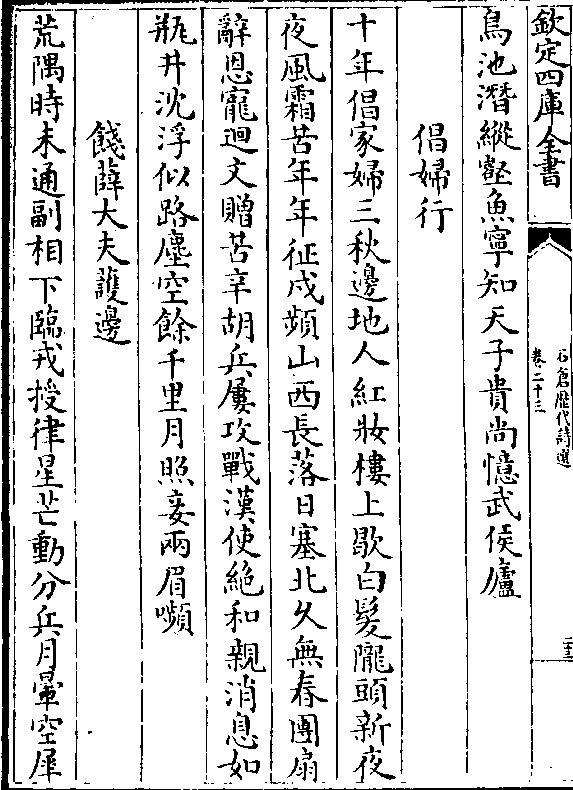 欽定四庫全書
石倉歷代詩選
卷二十三
鳥池潛縱壑魚寧知天子貴尚憶武侯廬
倡婦行
十年倡家婦三秋邊地人紅妝樓上歇白髮隴頭新夜
夜風霜苦年年征戍頻山西長落日塞北久無春團扇
辭恩寵迴文贈苦辛胡兵屢攻戰漢使絶和親消息如
瓶井沈浮似路塵空餘千里月照妾兩眉嚬
餞薛大夫護邊
荒隅時未通副相下臨戎授律星芒動分兵月暈空犀